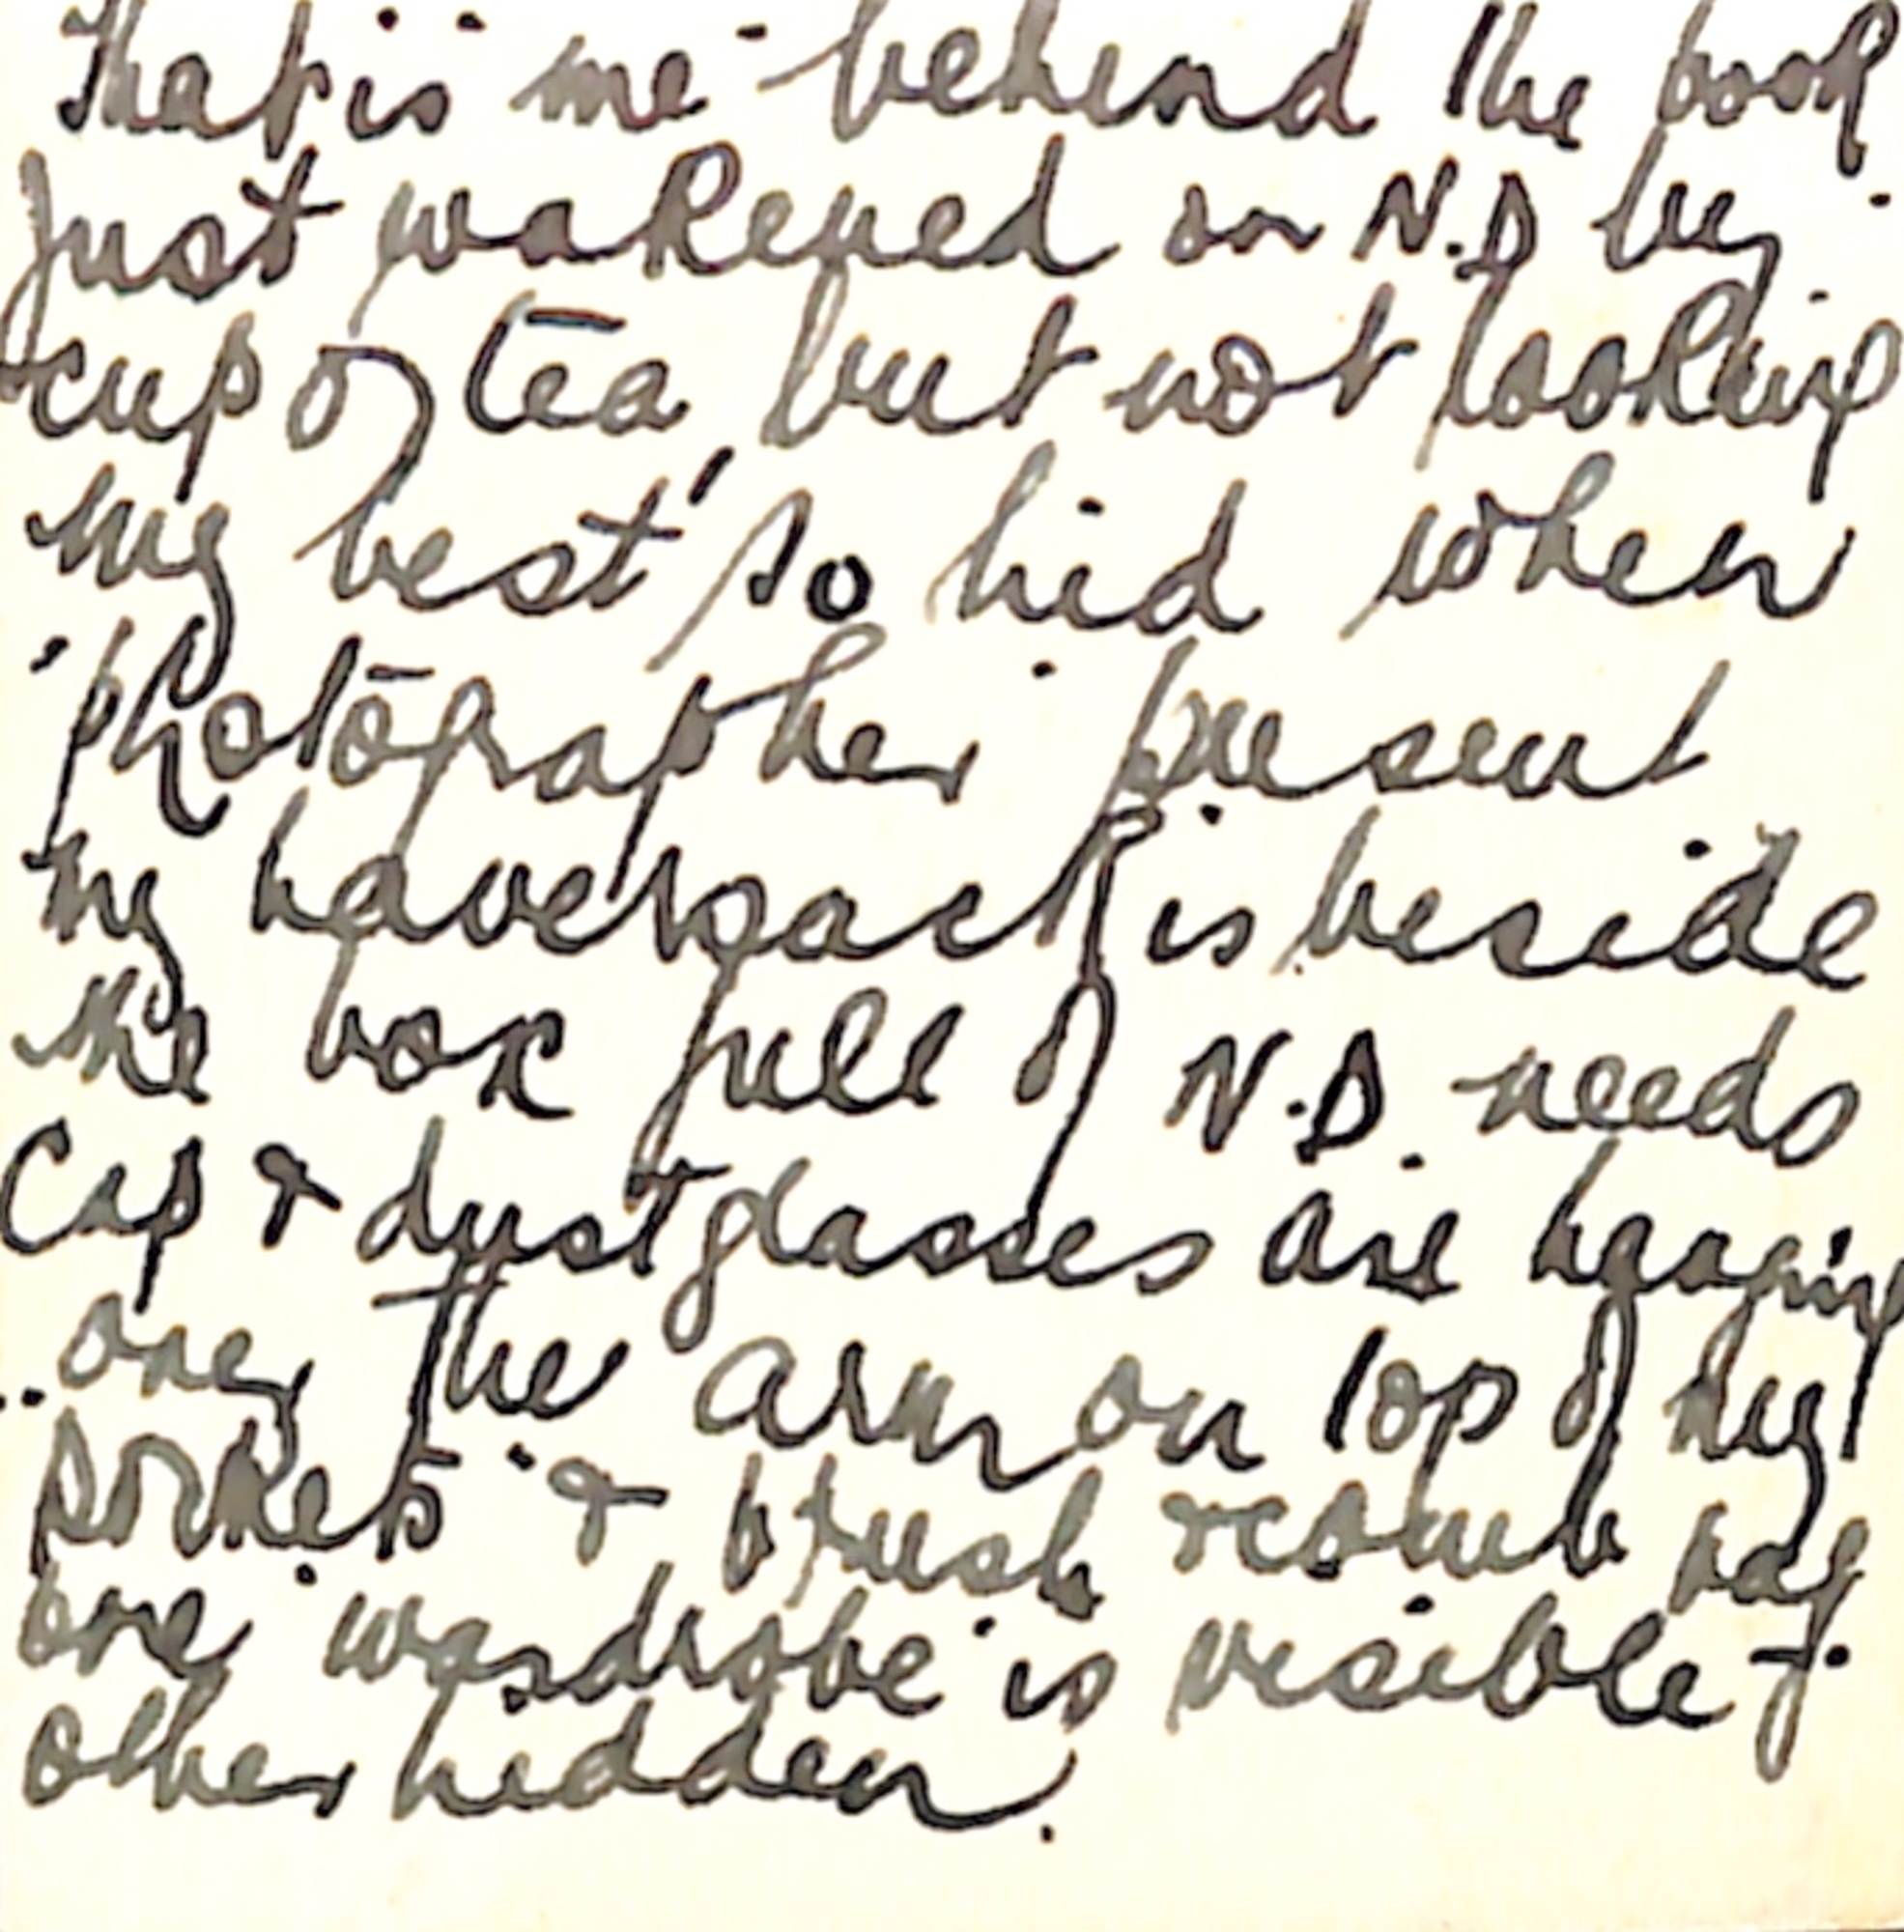 That is me - behind the book
just wakened on N.D by
cup of tea, but not looking
my best, so hid when
photographer present
my haversack is beside
the box full of N.D. needs
Cap & dust glasses are hanging
over the arm on top of my
pockets & brush & comb bag
one wardrobe is visible &
other hidden.